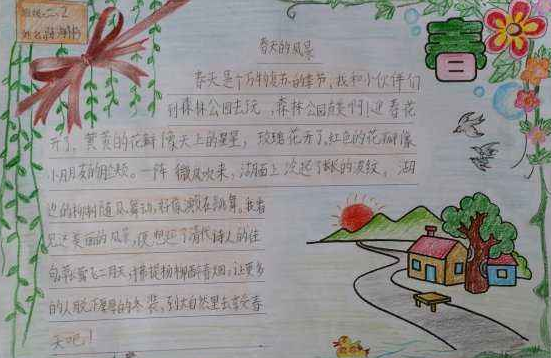 班级:二、2
姓名
春
春天的风景
春天是个万物复苏的季节,我和小伙伴们
到森林公园去玩,森林公园真美啊!迎春花
开了,黄黄的花瓣像天上的星星,玫瑰花开了,红色的花瓣像
小朋友的脸颊。一阵微风吹来,湖面上泛起了粼粼的波纹。湖
边的柳树随风舞动,好像演员在跳舞。我看
见这美丽的风景,便想起了清代诗人的佳
句,草长莺飞二月天,拂堤杨柳醉春烟,让更多
的人脱下厚厚的冬装,到大自然里去享受春
天吧!